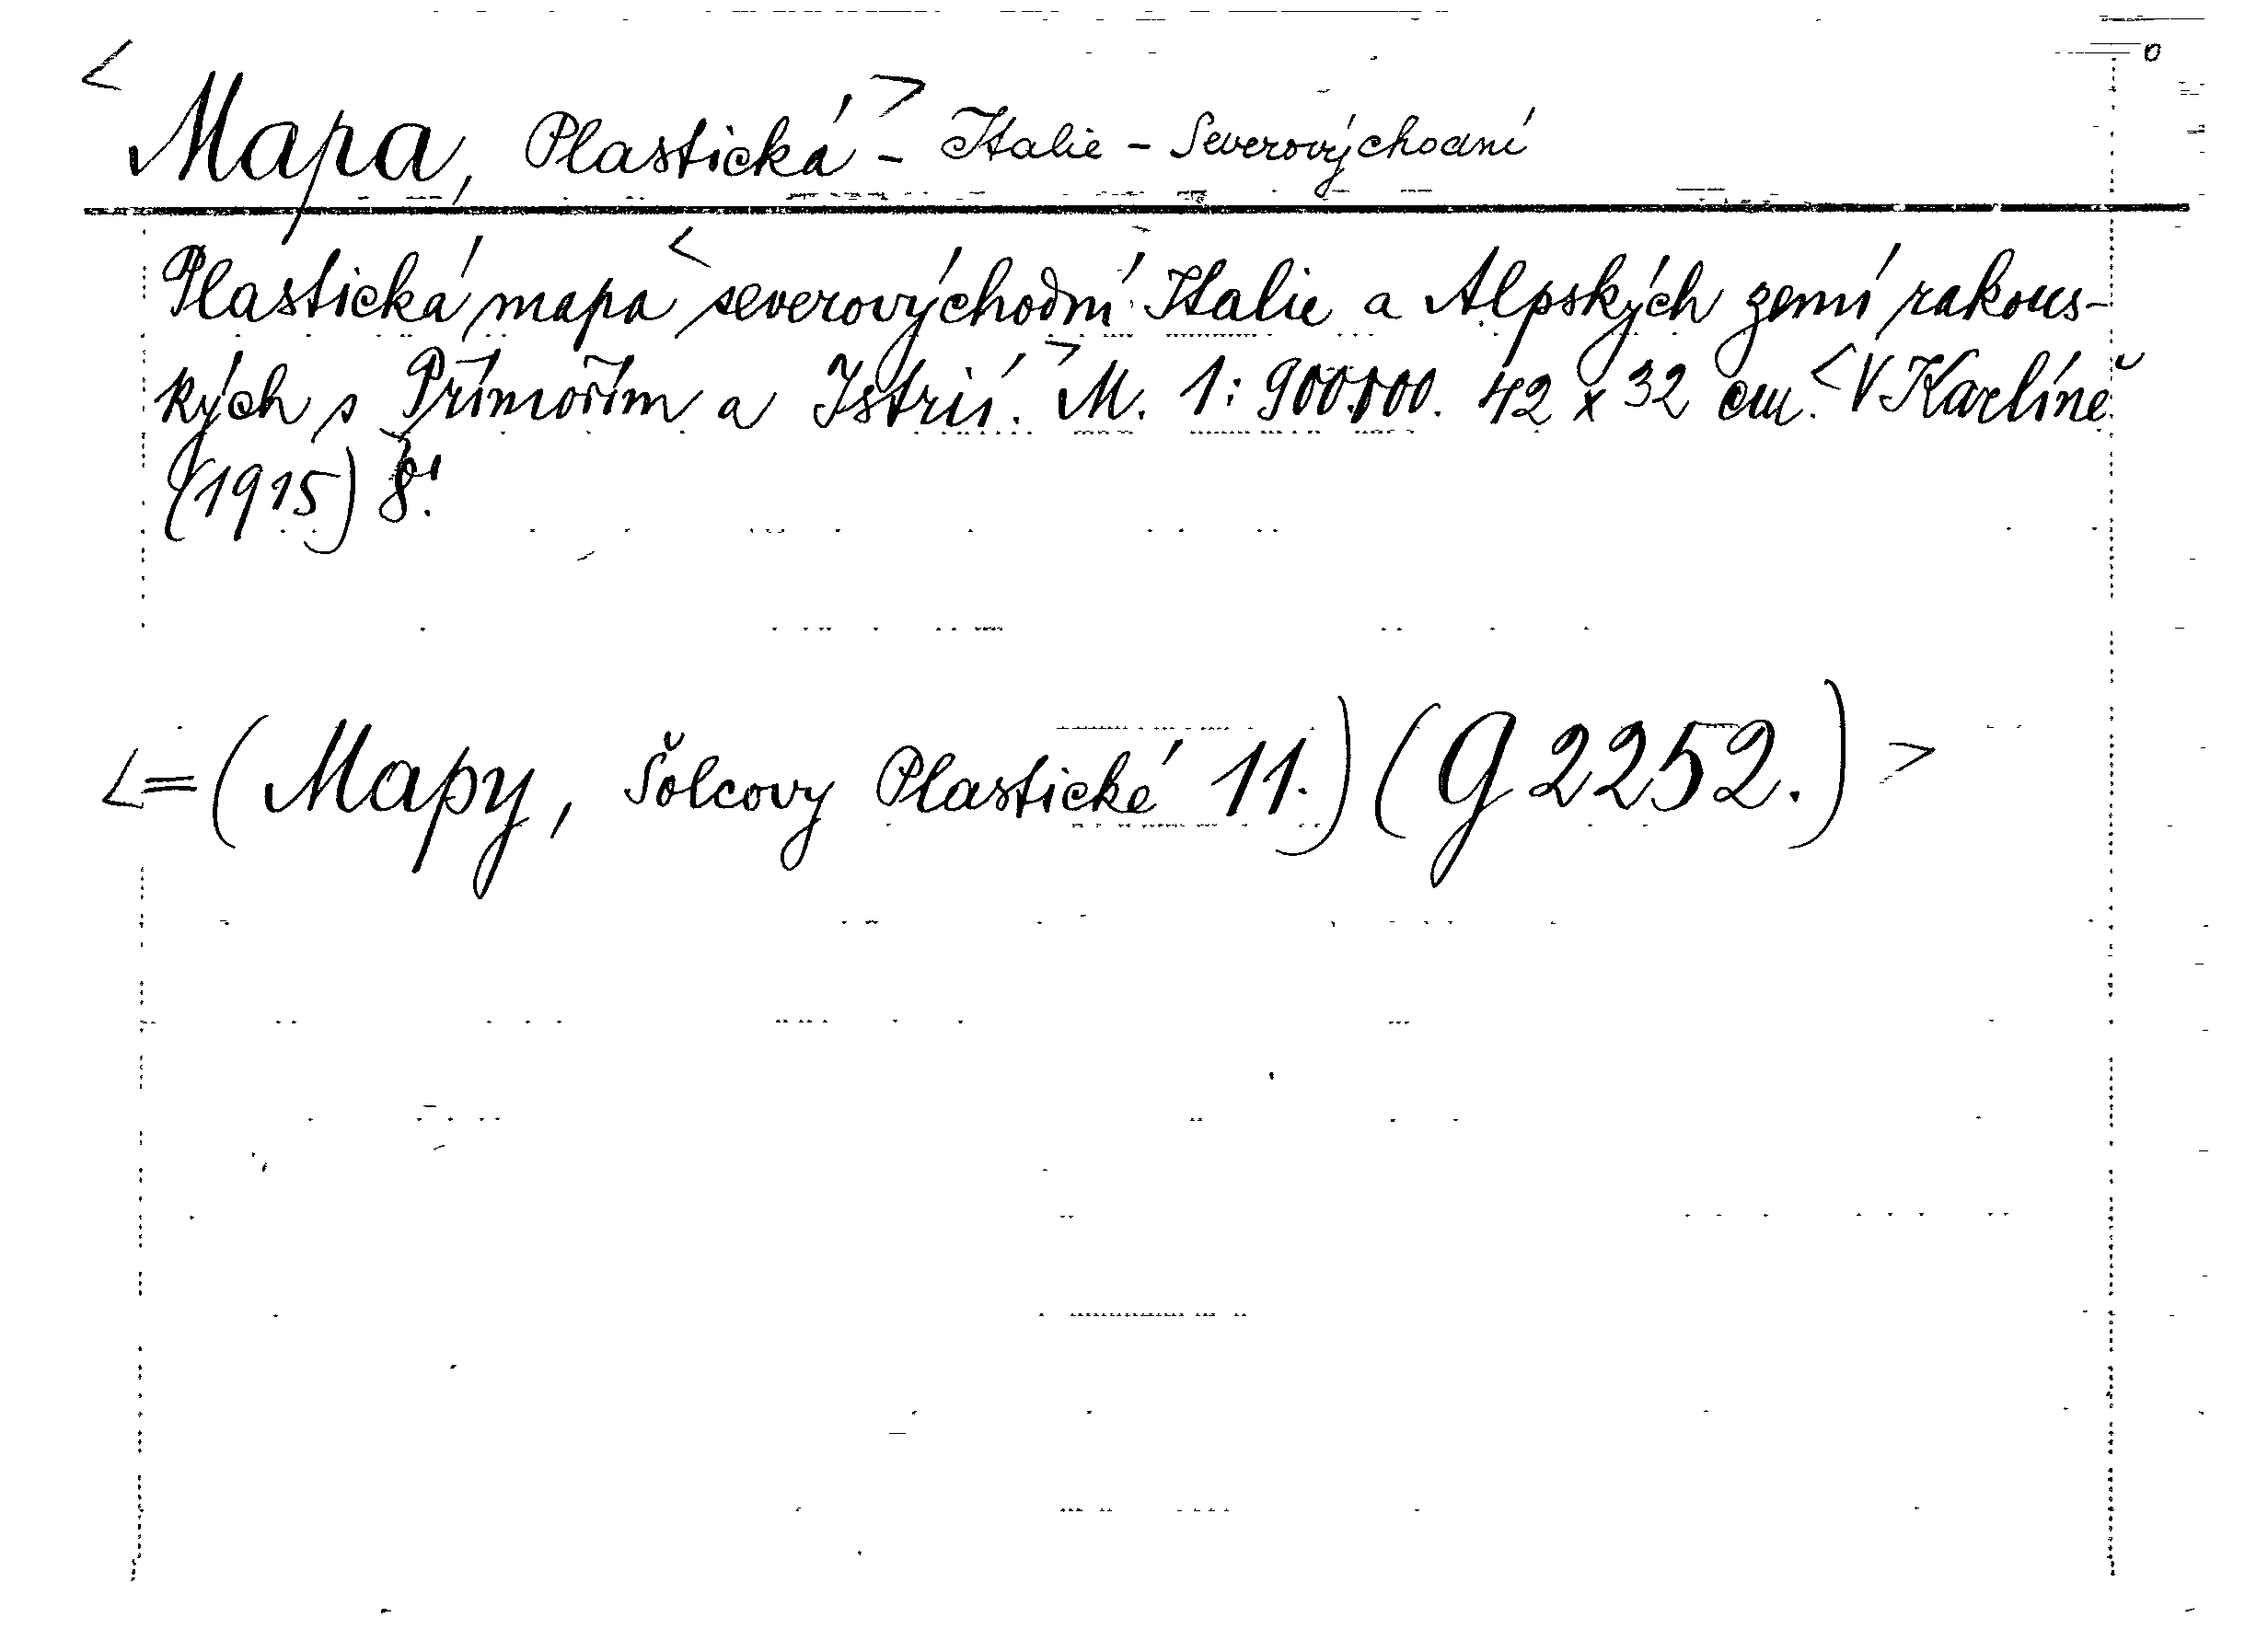 <Mapa, Plastická> - Italie - Severovýchodní
Plastická mapa <severovýchodní Italie a Alpských zemí rakous-
kých s Přímořím a Istrií.> M. 1:900.000. 42 x 32 cm. <V Karlíně
(1915)> 8°.
<=(Mapy, Šolcovy Plastické 11.) (G 2252.)>